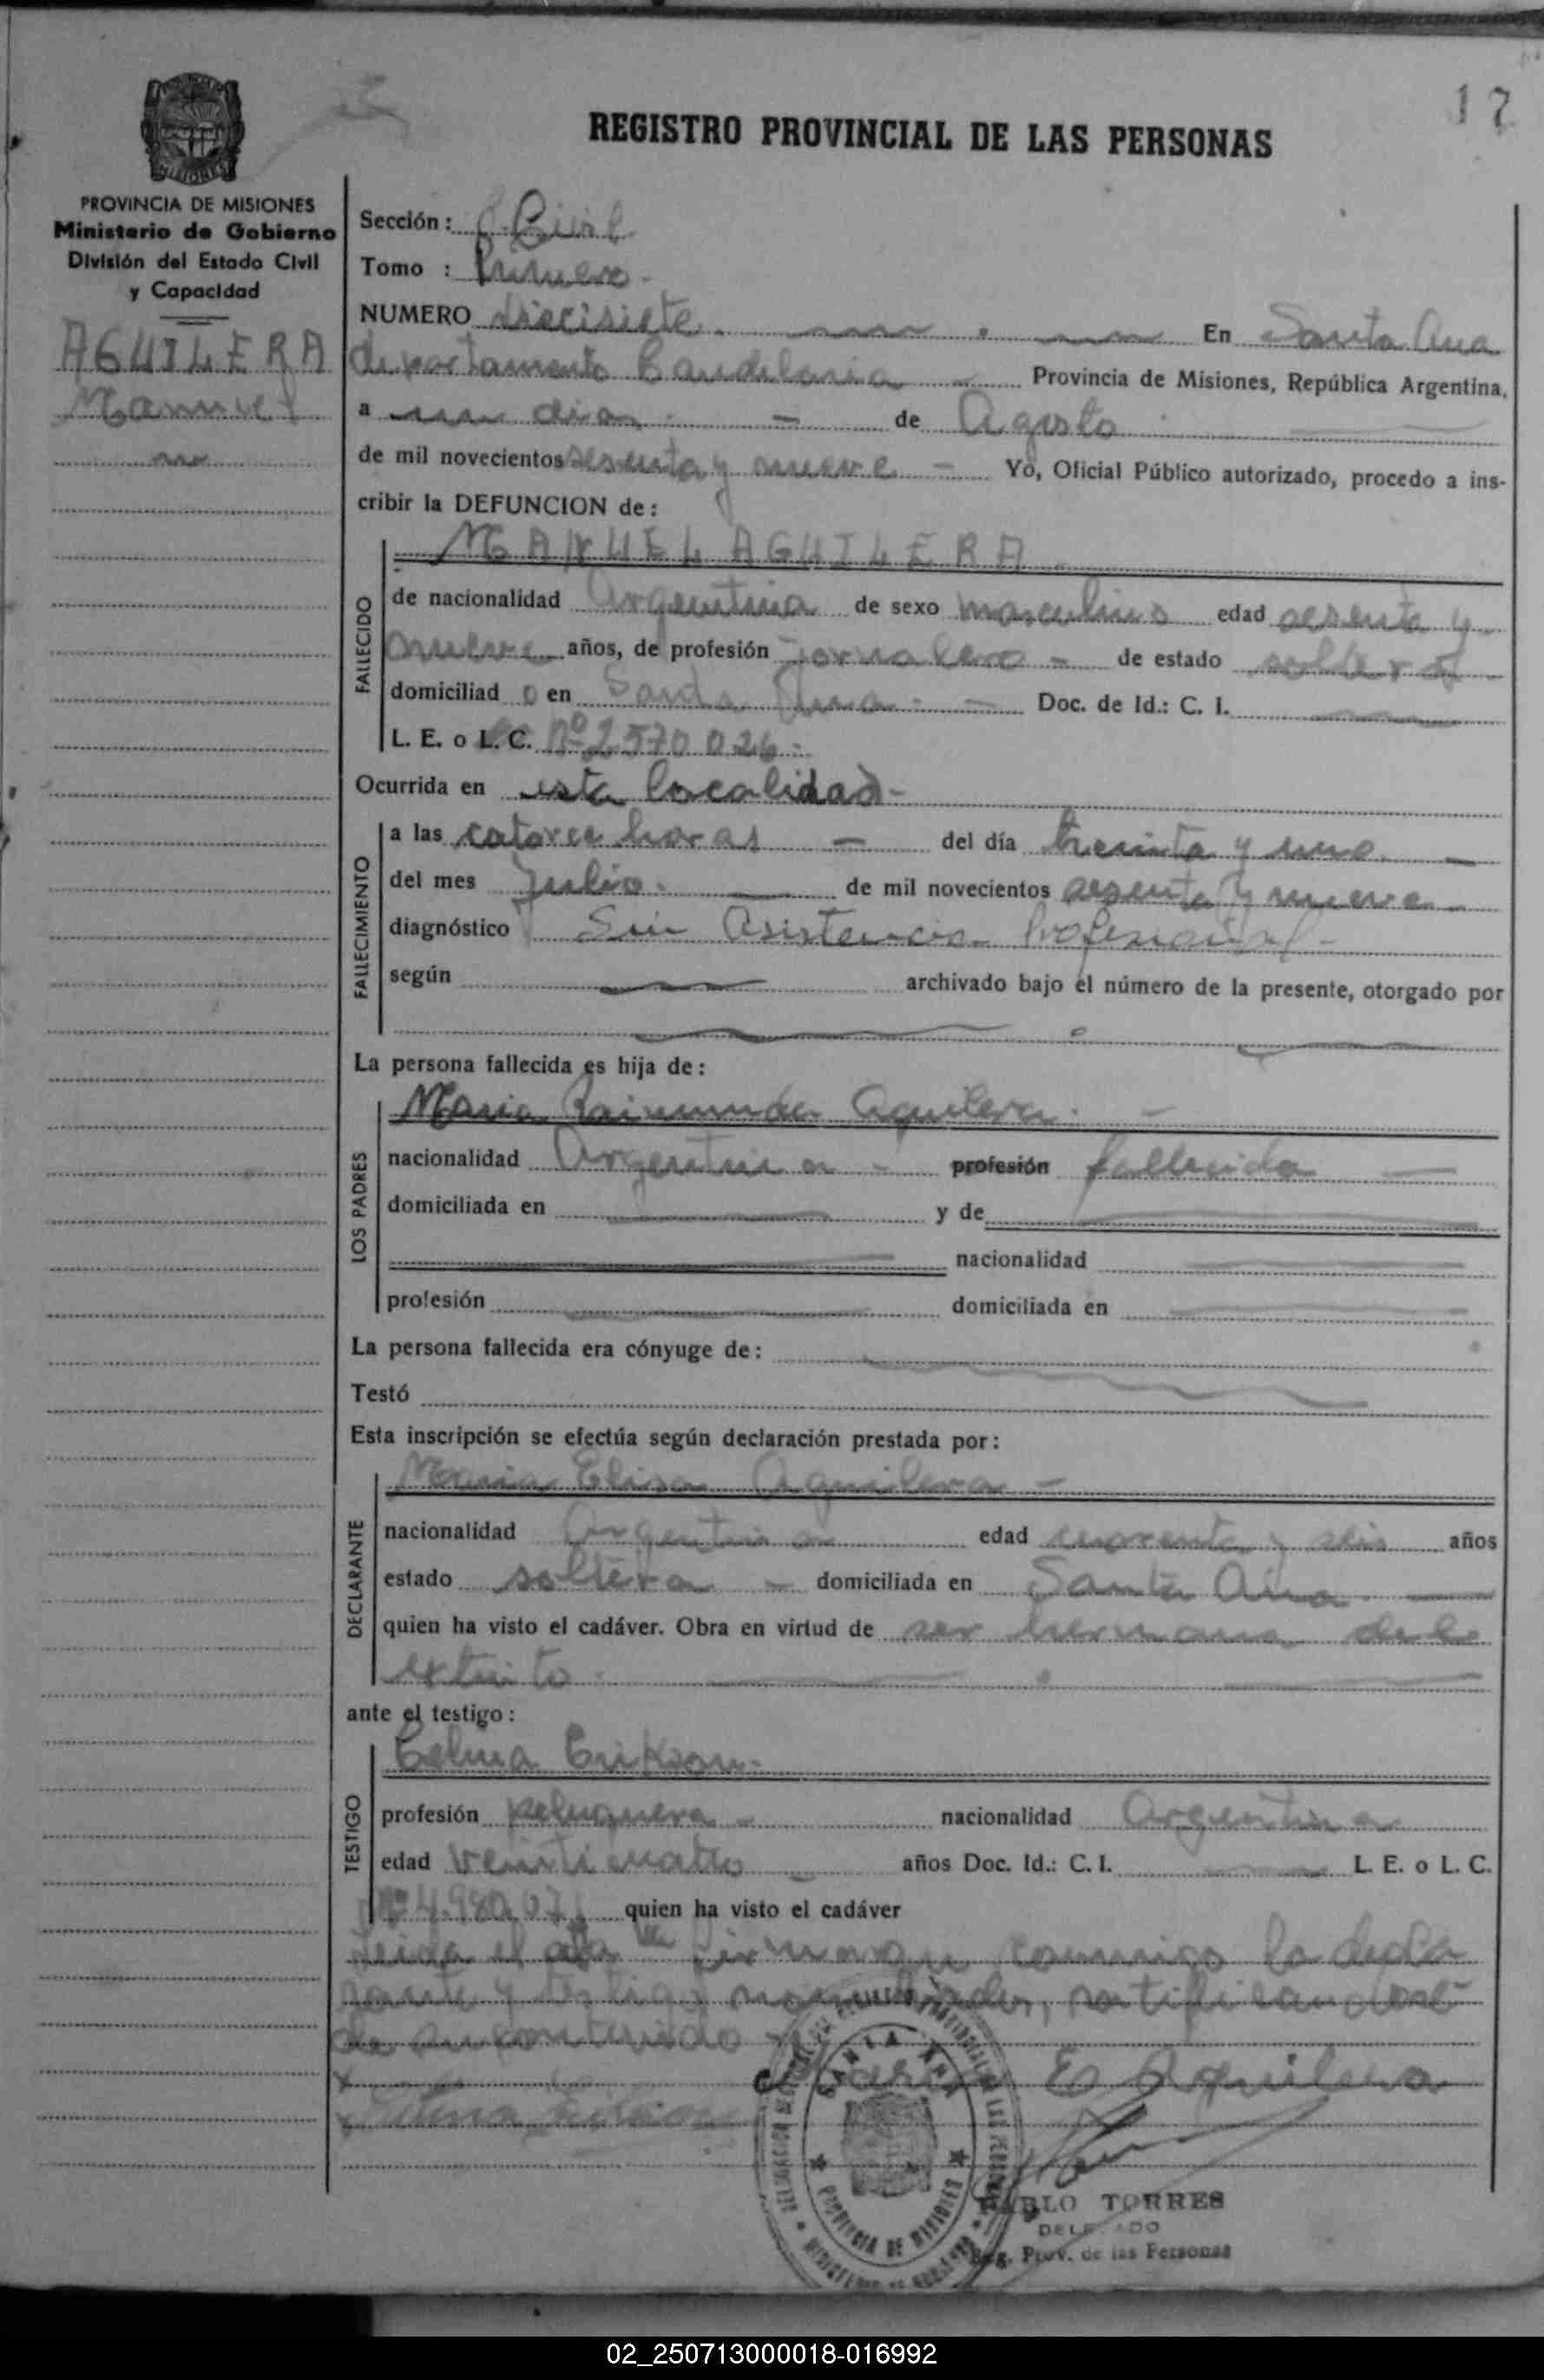 17
REGISTRO PROVINCIAL DE LAS PERSONAS
MISIONES
PROVINCIA DE MISIONES
Ministerio de Gobierno
División del Estado Civil
y Capacidad
AGUILERA
Manuel
Sección: Civil
Tomo : Primero.-
NUMERO diecisiete. En Santa Ana
departamento Candelaria - Provincia de Misiones, República Argentina,
a un dias - de Agosto
de mil novecientos sesenta y nueve - Yo, Oficial Público autorizado, procedo a ins-
cribir la DEFUNCION de:
MANUEL AGUILERA
FALLECIDO
de nacionalidad Argentina de sexo masculino edad sesenta y
nueve años, de profesión jornalero - de estado soltero
domiciliad o en Santa Ana. - Doc. de Id.: C. I.
L. E. o L. C. Nº 2570026.-
Ocurrida en esta localidad-
FALLECIMIENTO
a las catorce horas - del día treinta y uno. -
del mes Julio. de mil novecientos sesenta y nueve -
diagnóstico Sin Asistencia Profesional -
según archivado bajo el número de la presente, otorgado por
La persona fallecida es hija de:
LOS PADRES
Maria Raimunda Aguilera. -
nacionalidad Argentina - profesión fallecida -
domiciliada en y de
nacionalidad
profesión domiciliada en
La persona fallecida era cónyuge de:
Testó
Esta inscripción se efectúa según declaración prestada por:
DECLARANTE
Maria Elisa Aguilera -
nacionalidad Argentina edad cuarenta y seis años
estado soltera - domiciliada en Santa Ana
quien ha visto el cadáver. Obra en virtud de ser hermana del
extinto.
ante el testigo:
TESTIGO
Celma Erikson.-
profesión peluquera - nacionalidad Argentina
edad veinticuatro años Doc. Id.: C. I. L. E. o L. C.
Nº 4.980.07 quien ha visto el cadáver
Leida el acta la firman conmigo la decla
rante y testigo nombrados, ratificandose
de su contenido
x Maria E Aguilera
x
SANTA ANA
PROVINCIA DE MISIONES
PABLO TORRES
DELEGADO
Reg. Prov. de las Personas
02_250713000018-016992